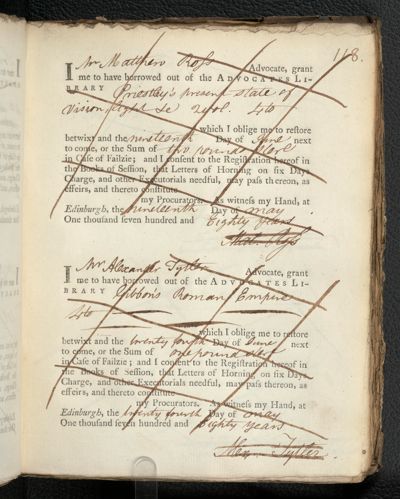 118.
I Mr Matthew Ross Advocate, grant
me to have borrowed out of the ADVOCATES LI-
BRARY Priestley's present state of
Vision light &c 2 vol. 4to
which I oblige me to restore
betwixt and the nineteenth Day of June next
to come, or the Sum of two pound
in Case of Failzie; and I consent to the Registration hereof in
the Books of Session, that Letters of Horning on six Days
Charge, and other Executorials needful, may pass thereon, as
effeirs, and thereto constitute
my Procurators. As witness my Hand, at
Edinburgh, the nineteenth Day of May
One thousand seven hundred and Eighty years
Matw. Ross
I Mr Alexander Tytler Advocate, grant
me to have borrowed out of the ADVOCATES LI-
BRARY Gibbon's Roman Empire
4to
which I oblige me to restore
betwixt and the twenty fourth Day of June next
to come, or the Sum of one pound
in Case of Failzie; and I consent to the Registration hereof in
the Books of Session, that Letters of Horning on six Days
Charge, and other Executorials needful, may pass thereon, as
effeirs, and thereto constitute
my Procurators. As witness my Hand, at
Edinburgh, the twenty fourth Day of May
One thousand seven hundred and Eighty years
Alexr. Tytler